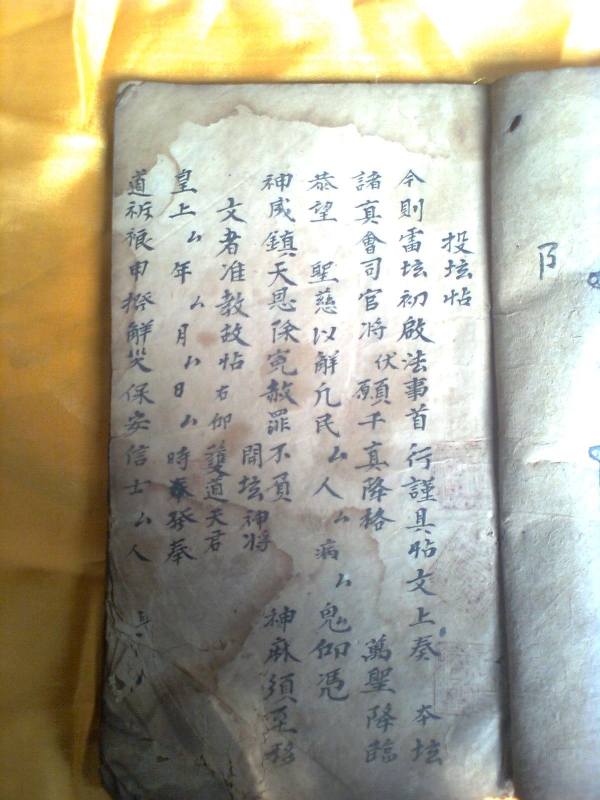 投坛帖
今則雷坛初啟法事首行謹具帖文上奏 夲坛
諸真會司官将 伏願千真降格 萬聖降臨
恭望 聖慈以解凢民厶人厶病厶鬼仰馮
神威鎮天恩除寃赦罪不負 神麻須至移
文者准教故帖 右仰 開坛神将
䕶道天君
皇上厶年厶月厶日厶時 發奉
道祈禳申 解災保安信士厶人
阝